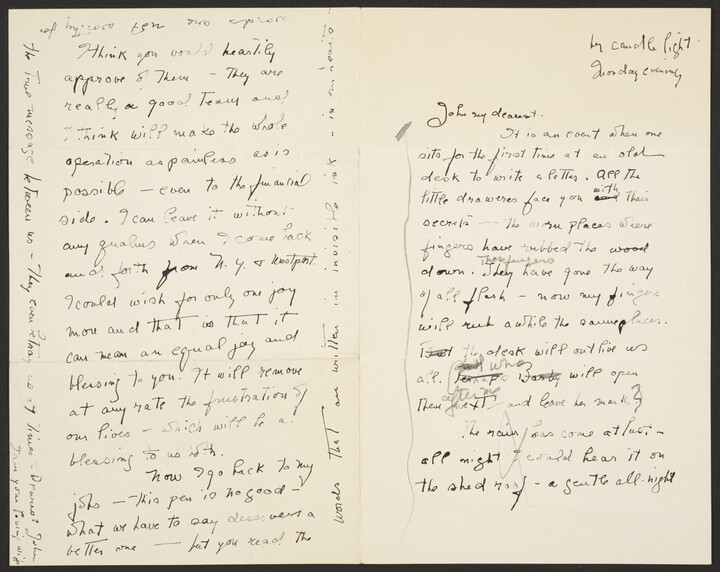 by candle light
Monday evening
John my dearest.
It is an event when one
sits for the first time at an old
desk to write a letter. All the
little draweres face you with their
secrets — the worn places where
fingers have rubbed the wood
down. The fingers They have gone the way
of all flesh — now my fingers
will rub a while the same places.
But the desk will outlive us
all. And who Perhaps will open
them next after me and leave her mark?
The rain has come at last —
all night I could hear it on
the shed roof — a gentle all night
I think you would heartily
approve of them — They are
really a good team and
I think will make the whole
operation as painless as is
possible — even to the financial
side. I can leave it without
any qualms when I come back
and forth from N.Y. & Westport.
I could wish for only one joy
more and that is that it
can mean an equal joy and
blessing to you. It will remove
at any rate the frustration of
our lives — which will be a
blessing to us both.
Now I go back to my
jobs — this pen is no good —
what we have to say deserves a
better one — but you read the
words that are written in invisible ink — in our hearts —
words are not worthy of
the true message between us — They even betray us at times — Dearest John
I am your loving wife